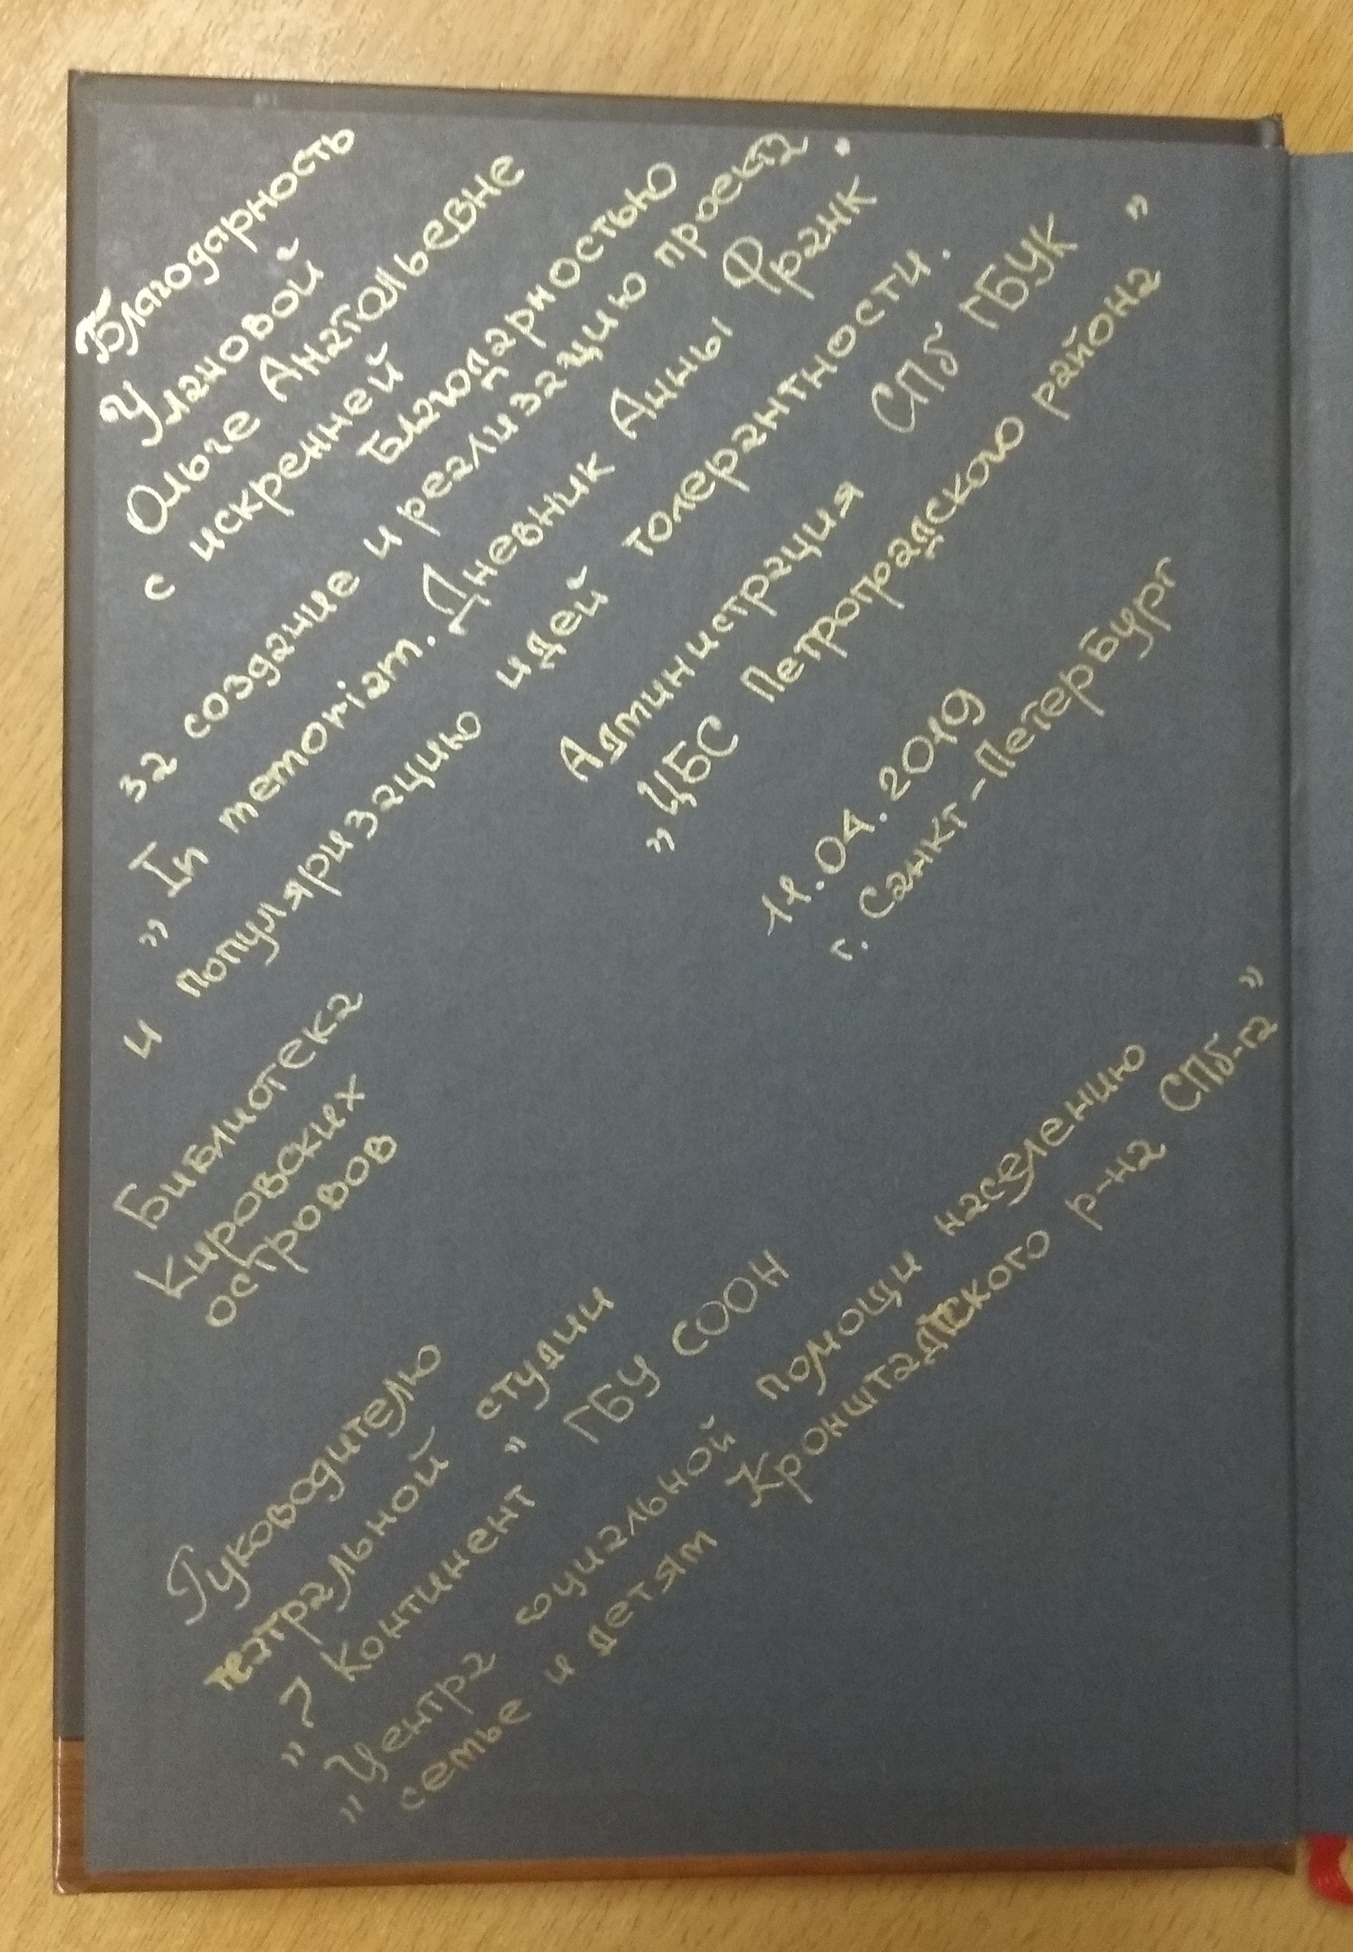 Благодарность
Улановой
Ольге Анатольевне
с искренней
благодарностью
за создание и реализацию проекта
„In memoriam. Дневник Анны Франк”
и популяризацию идей толерантности.
Администрация СПб ГБУК
„ЦБС Петроградского района”
11.04.2019
г. Санкт-Петербург
Библиотека
Кировских
островов
Руководителю
театральной студии
„7 Континент” ГБУ СООН
„Центра социальной помощи населению
семье и детям Кронштадтского р-на СПб-га”